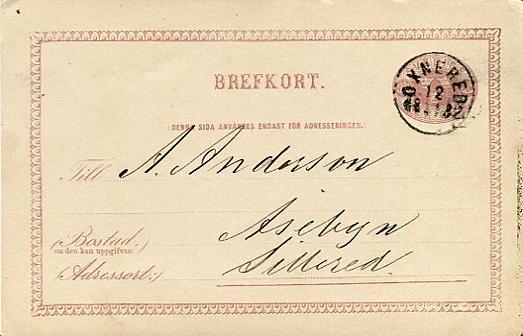 BREFKORT.
OXNERED
12
(DENNA SIDA ANVÄNDES ENDAST FÖR ADRESSERINGEN.)
Till A. Anderson
Asebyn
(Bostad,
om den kan uppgifvas:)
Sillered
(Adressort:)